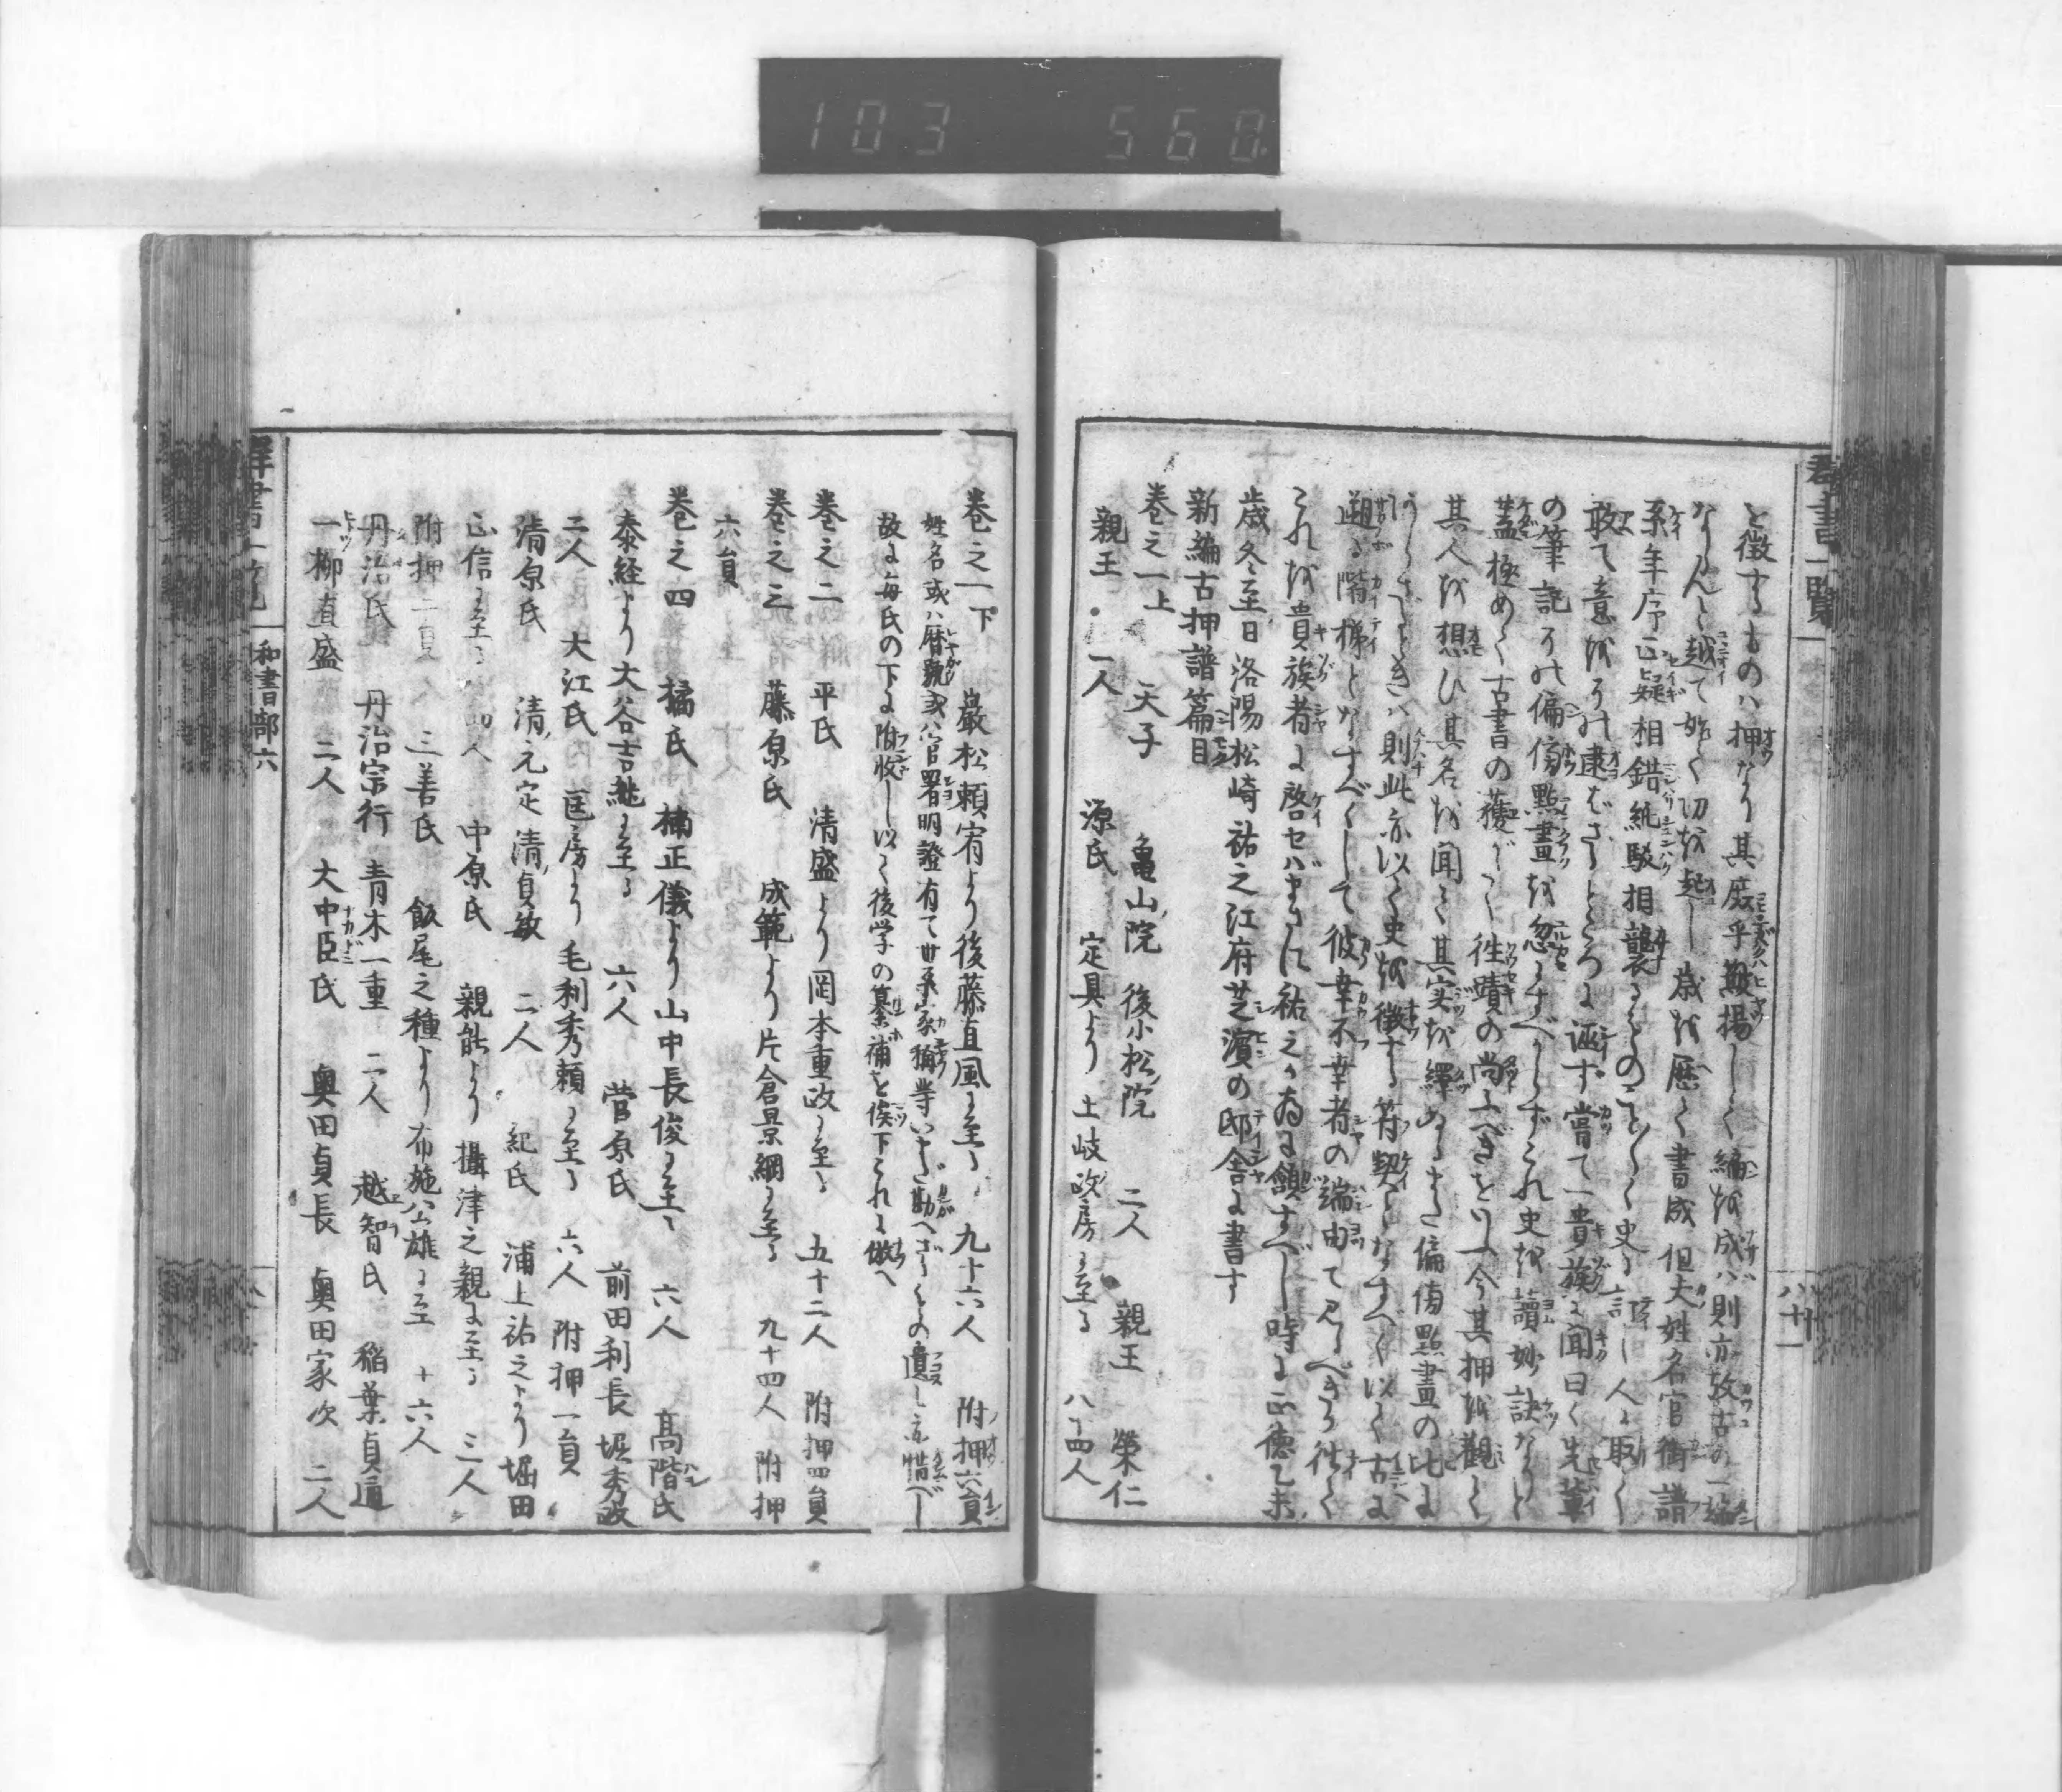 103 560
群書一覧
八十一
と徴するものハ押なり其庶乎鞭揚しく編を成バ則亦攷古の一端
ならんと越て始て切を起し歳を歴く書成但夫姓名官銜譜
系年序正疑相錯純駁相襲るゝのごとく史に言し人に取く
敢て意をその逮ばざるところに誣す嘗て一貴族に聞曰く先輩
の筆記その偏傍點畫を忽にすべからずこれ史を讀妙訣なりと
蓋極めく古書の獲がく徃蹟の尚ふべきを以今其押を觀く
其人を想ひ其名を聞く其実を繹ぬるまた偏傍點畫の比に
則此亦以く史を徴する符契となすべく以く古に
遡る階梯となすべくして彼幸不幸者の端由て見るべきそ徃く
これを貴族者に啓セバまさに祐之が為に顫すべし時に正徳乙未
歳冬至日洛陽松崎祐之江府芝濱の邸舎に書す
新編古押譜篇目
巻之一上 天子 亀山院 後小松院 二人 親王 榮仁
親王 一人 源氏 定具より土岐政房に至る 八十四人
巻之一下 巖松頼宥より後藤直風に至る 九十六人 附押六員
姓名或ハ暦號或ハ官署明證有て世系家稱等いまだ勘へざるもの遺し亦惜べし
故に毎氏の下に附收し以く後学の纂補を俟下これに傚へ
巻之二 平氏 清盛より岡本重政に至る 五十二人 附押四員
巻之三 藤原氏 成範より片倉景綱に至る 九十四人 附押
六員
巻之四 橘氏 楠正儀より山中長俊に至る 六人 高階氏
泰経より大谷吉継に至る 六人 菅原氏 前田利長 堀秀政
二人 大江氏 匡房より毛利秀頼に至る 六人 附押一員
清原氏 清元定 清貞敏 二人 紀氏 浦上祐之より堀田
正信に至る 四人 中原氏 親能より攝津之親に至る 三人
附押二員 三善氏 飯尾之種より布施公雄に至 十六人
丹治氏 丹治宗行 青木一重 二人 越智氏 稲葉貞通
一柳直盛 二人 大中臣氏 奥田貞長 奥田家次 二人
群書一覧
和書部六